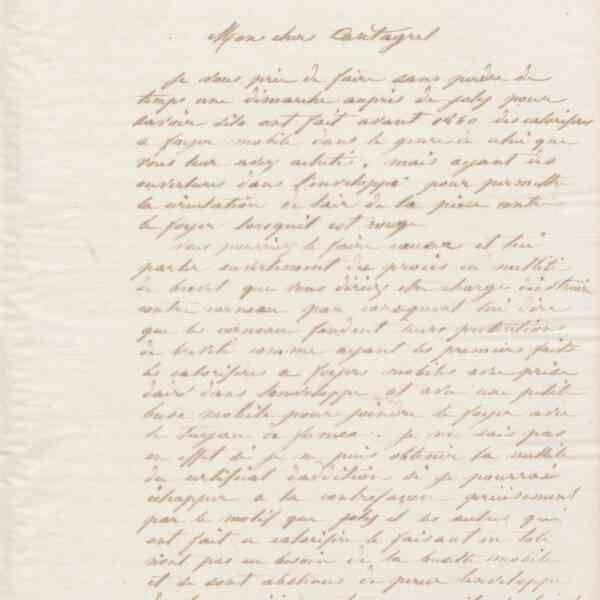 Mon cher Cantagrel
Je vous prie de faire sans perdre de
temps une démarche auprès de Joly pour
savoir sils ont fait avant 1860 des calorifères
a foyer mobile dans le genre de celui que
vous leur avez achetés, mais ayant des
ouvertures dans l'enveloppe pour permettre
la circulation de lair de la pièce contre
le foyer lorsquil est rouge
Vous pourriez le faire causer et lui
parler du procès en nullité
de brevet que vous
contre corneau par conséquent lui dire
que les corneau fondent leurs prétentions
de brevet comme ayant les premiers faits
les calorifères a foyers mobiles avec prise
dair dans lenveloppe et avec une petite
buse mobile pour joindre le foyer avec
le tuyau de fumée. je ne sais pas
en effet si je puis obtenir la nullité
du certificat daddition si je pourrais
échapper a la contrefaçon précisement
par le motif que joly et les autres qui
ont fait ce calorifère le faisant en tole
nont pas eu besoin de la buselle mobile
et se sont abstenus de percer lenveloppe